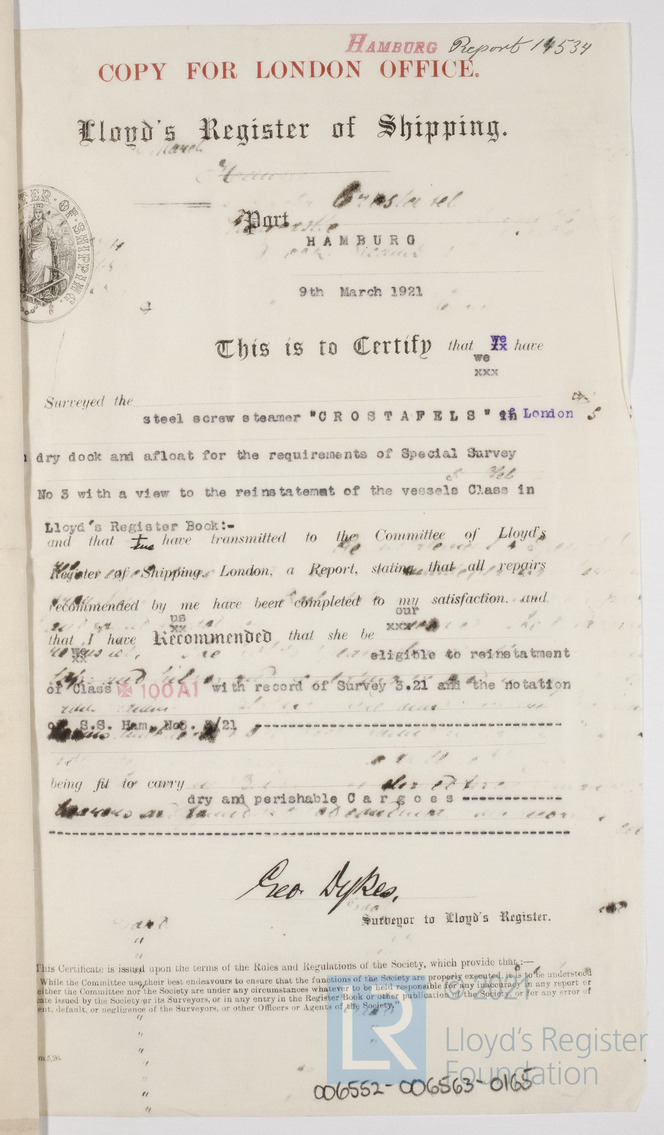 HAMBURG Report 14534
COPY FOR LONDON OFFICE.
Lloyd's Register of Shipping.
Port
HAMBURG
9th March 1921
This is to Certify that we have
xx
we
xxx
Surveyed the
steel screw steamer "CROSTAFELS" of London
in
dry dock and afloat for the requirements of Special Survey
No 3 with a view to the reinstatemat of the vessels Class in
Lloyd's Register Book:-
and that have transmitted to the Committee of Lloyd's
Register of Shipping, London, a Report, stating that all repairs
recommended by me have been completed to my satisfaction. and
us our
xx xxx
that I have Recommended that she be
We
xx eligible to reinstatment
of Class 100A1 with record of Survey 3.21 and the notation
of S.S. Ham. No3. 3/21 ---
being fit to carry
dry and perishable Cargoes ---
Geo. Dykes.
Surveyor to Lloyd's Register.
This Certificate is issued upon the terms of the Rules and Regulations of the Society, which provide that :—
While the Committee use their best endeavours to ensure that the functions of the Society are properly executed, it is to be understood
either the Committee nor the Society are under any circumstances whatever to be held responsible for any inaccuracy in any report or
cate issued by the Society or its Surveyors, or in any entry in the Register Book or other publication of the Society, or for any error of
ent, default, or negligence of the Surveyors, or other Officers or Agents of the Society."
m.5,20.
© 2021
LR
Lloyd's Register
Foundation
006552-006563-0165